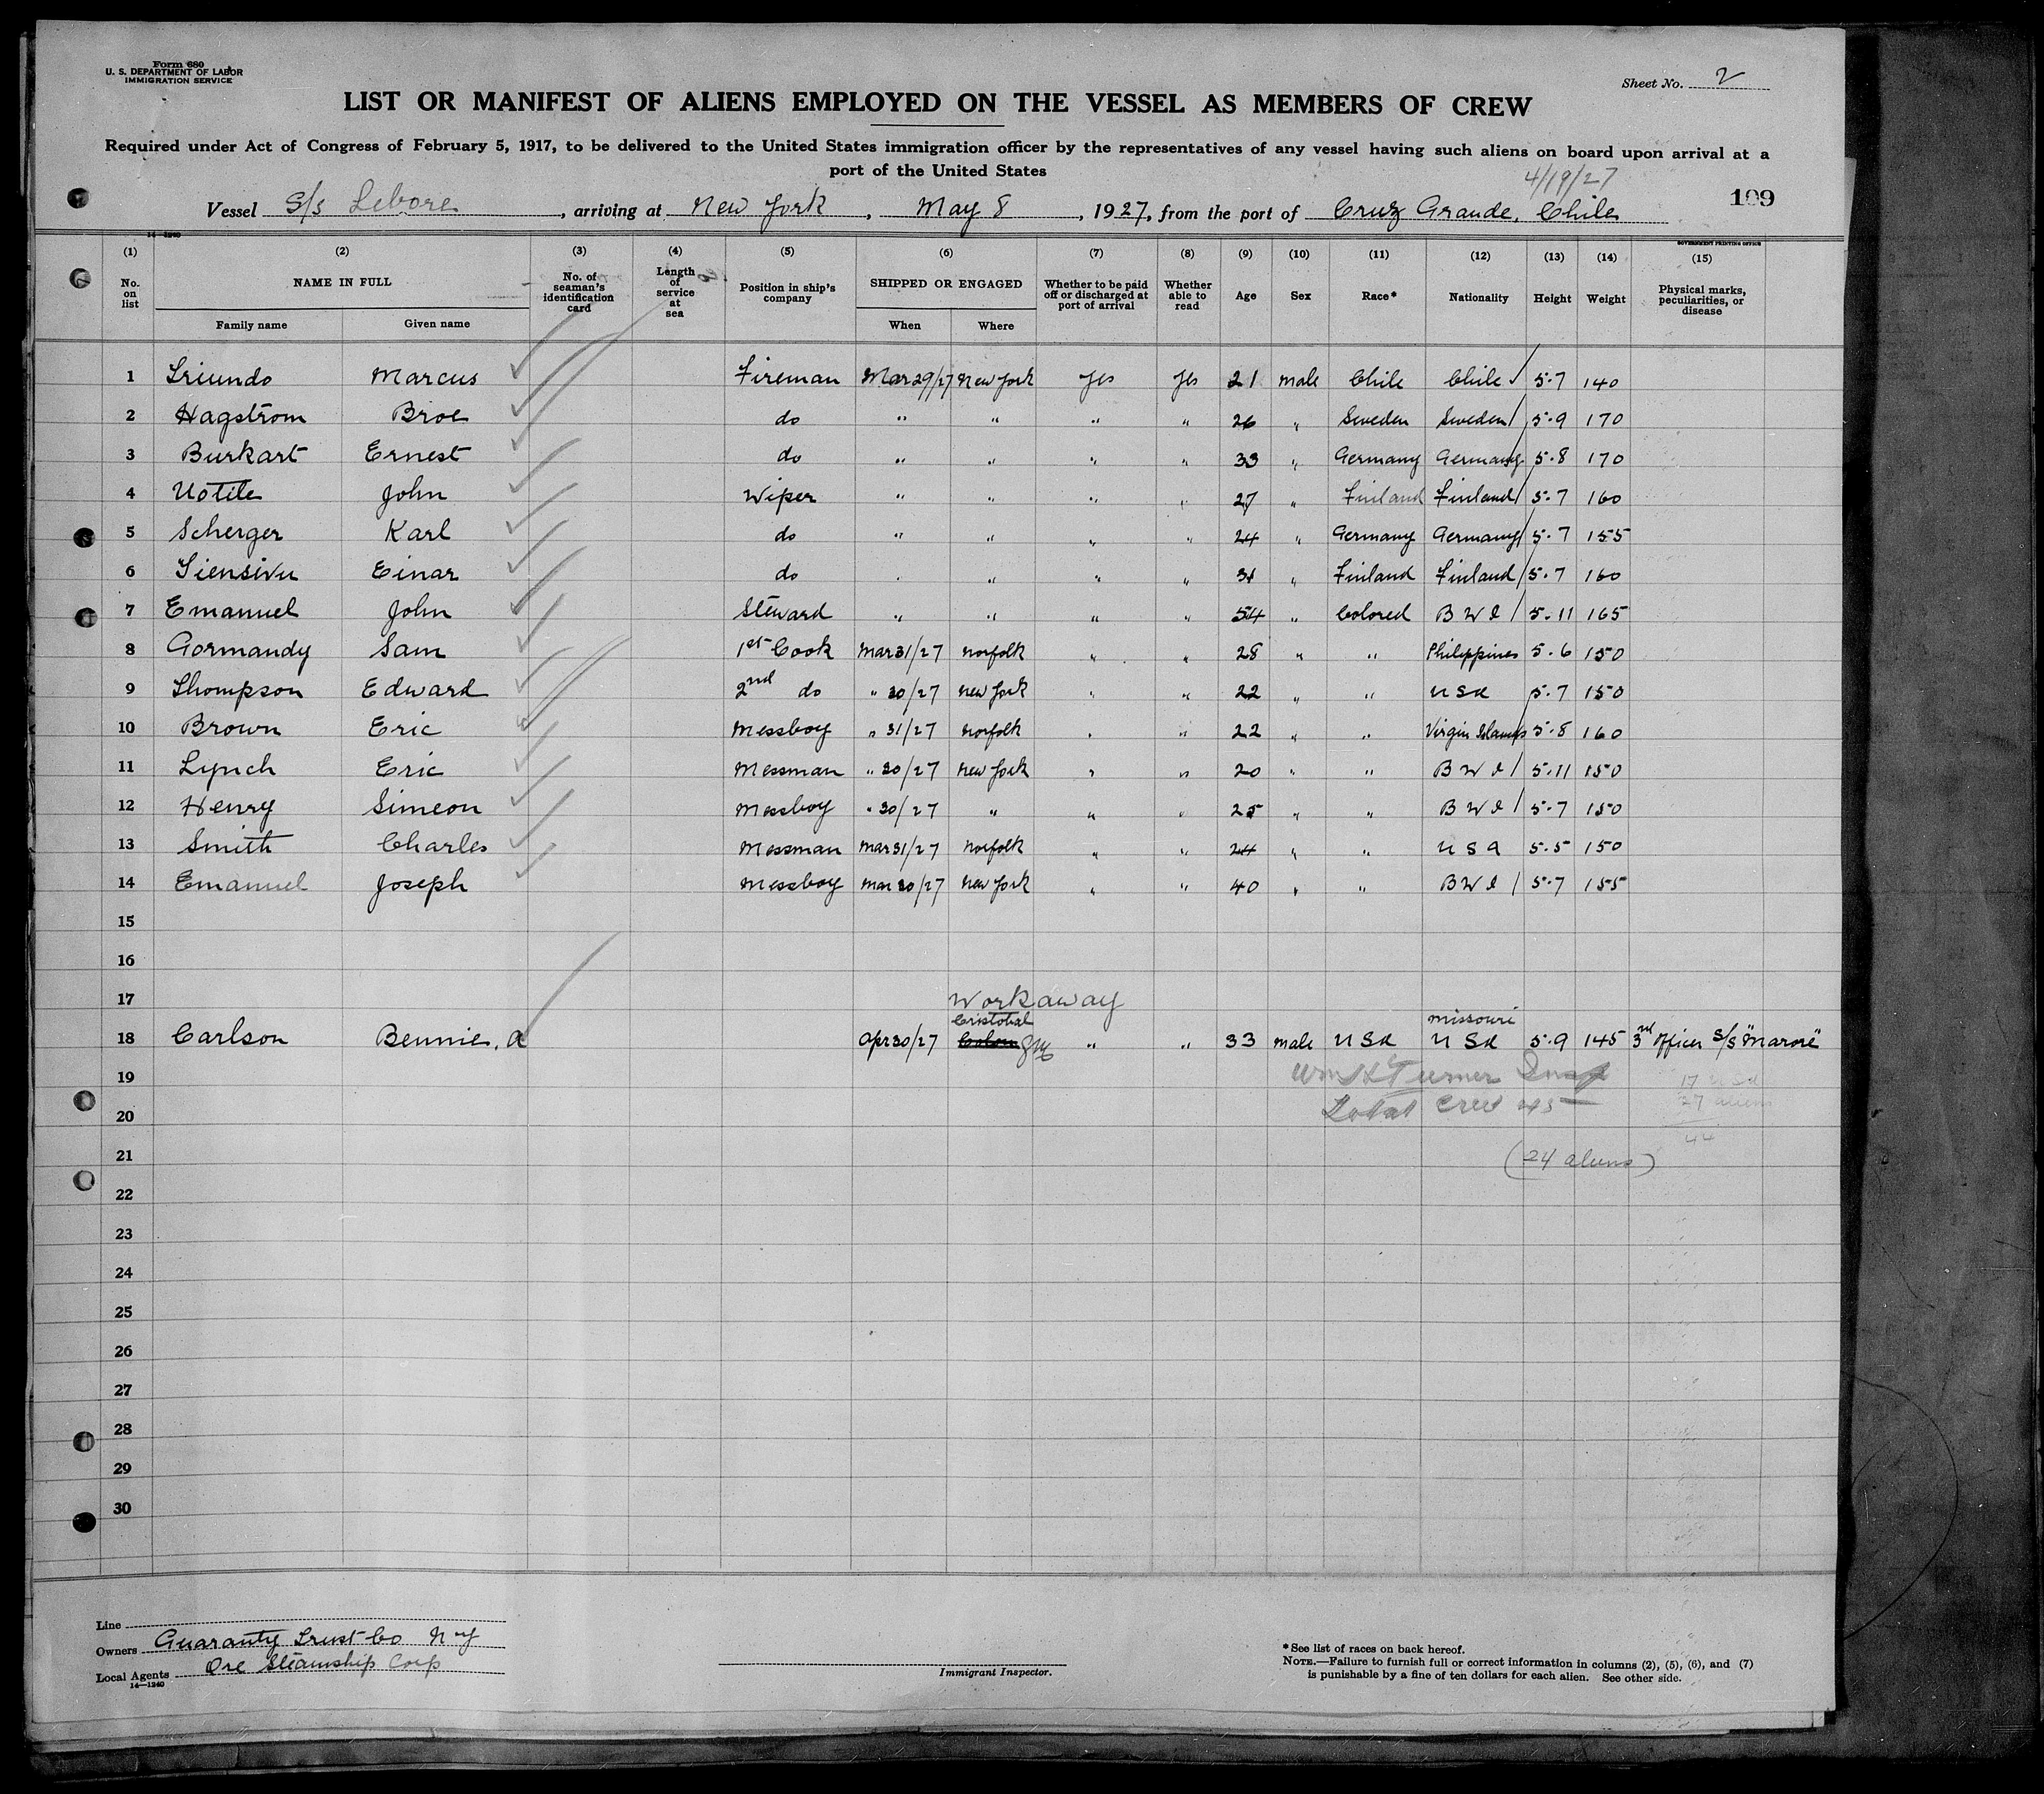 Form 680
U. S. DEPARTMENT OF LABOR
IMMIGRATION SERVICE
Sheet No. 2
LIST OR MANIFEST OF ALIENS EMPLOYED ON THE VESSEL AS MEMBERS OF CREW
Required under Act of Congress of February 5, 1917, to be delivered to the United States immigration officer by the representatives of any vessel having such aliens on board upon arrival at a
port of the United States
4/19/27
Vessel S/s Lebore, arriving at New York, May 8, 1927, from the port of Cruz Grande, Chile
109
14-1240
GOVERNMENT PRINTING OFFICE
(1) (2) (3) (4) (5) (6) (7) (8) (9) (10) (11) (12) (13) (14) (15)
No. on list NAME IN FULL No. of seaman's identification card Length of service at sea Position in ship's company SHIPPED OR ENGAGED Whether to be paid off or discharged at port of arrival Whether able to read Age Sex Race* Nationality Height Weight Physical marks, peculiarities, or disease
Family name Given name When Where
1 Marcus Fireman Mar 29/27 New York Yes Yes 21 male Chile Chile 5.7 140
2 Hagstrom Broe do " " " " 26 " Sweden Sweden 5.9 170
3 Burkart Ernest do " " " " 33 " Germany Germany 5.8 170
4 Uotile John Wiper " " " " 27 " Finland Finland 5.7 160
5 Scherger Karl do " " " " 24 " Germany Germany 5.7 155
6 Einar do " " " " 31 " Finland Finland 5.7 160
7 Emanuel John Steward " " " " 54 " Colored B W I 5.11 165
8 Gormandy Sam 1st Cook Mar 31/27 Norfolk " " 28 " " Philippines 5.6 150
9 Thompson Edward 2nd do " 30/27 New York " " 22 " " U S A 5.7 150
10 Brown Eric Messboy " 31/27 Norfolk " " 22 " " Virgin Islands 5.8 160
11 Lynch Eric Messman " 30/27 New York " " 20 " " B W I 5.11 150
12 Henry Simeon Messboy " 30/27 " " " 25 " " B W I 5.7 150
13 Smith Charles Messman Mar 31/27 Norfolk " " 24 " " U S A 5.5 150
14 Emanuel Joseph Messboy Mar 30/27 New York " " 40 " " B W I 5.7 155
15
16
17 Workaway
Cristobal missouri
18 Carlson Bennie, A Apr 30/27 Colon " " 33 male U S A U S A 5.9 145 3rd Officer S/S "Marore"
19 Wm L Turner Insp 17 USA
20 Total Crew 45 27 aliens
44
21 (24 aliens)
22
23
24
25
26
27
28
29
30
Line
Owners Guaranty Trust Co N Y
Local Agents Ore Steamship Corp
14-1240
Immigrant Inspector.
* See list of races on back hereof.
NOTE.—Failure to furnish full or correct information in columns (2), (5), (6), and (7)
is punishable by a fine of ten dollars for each alien. See other side.